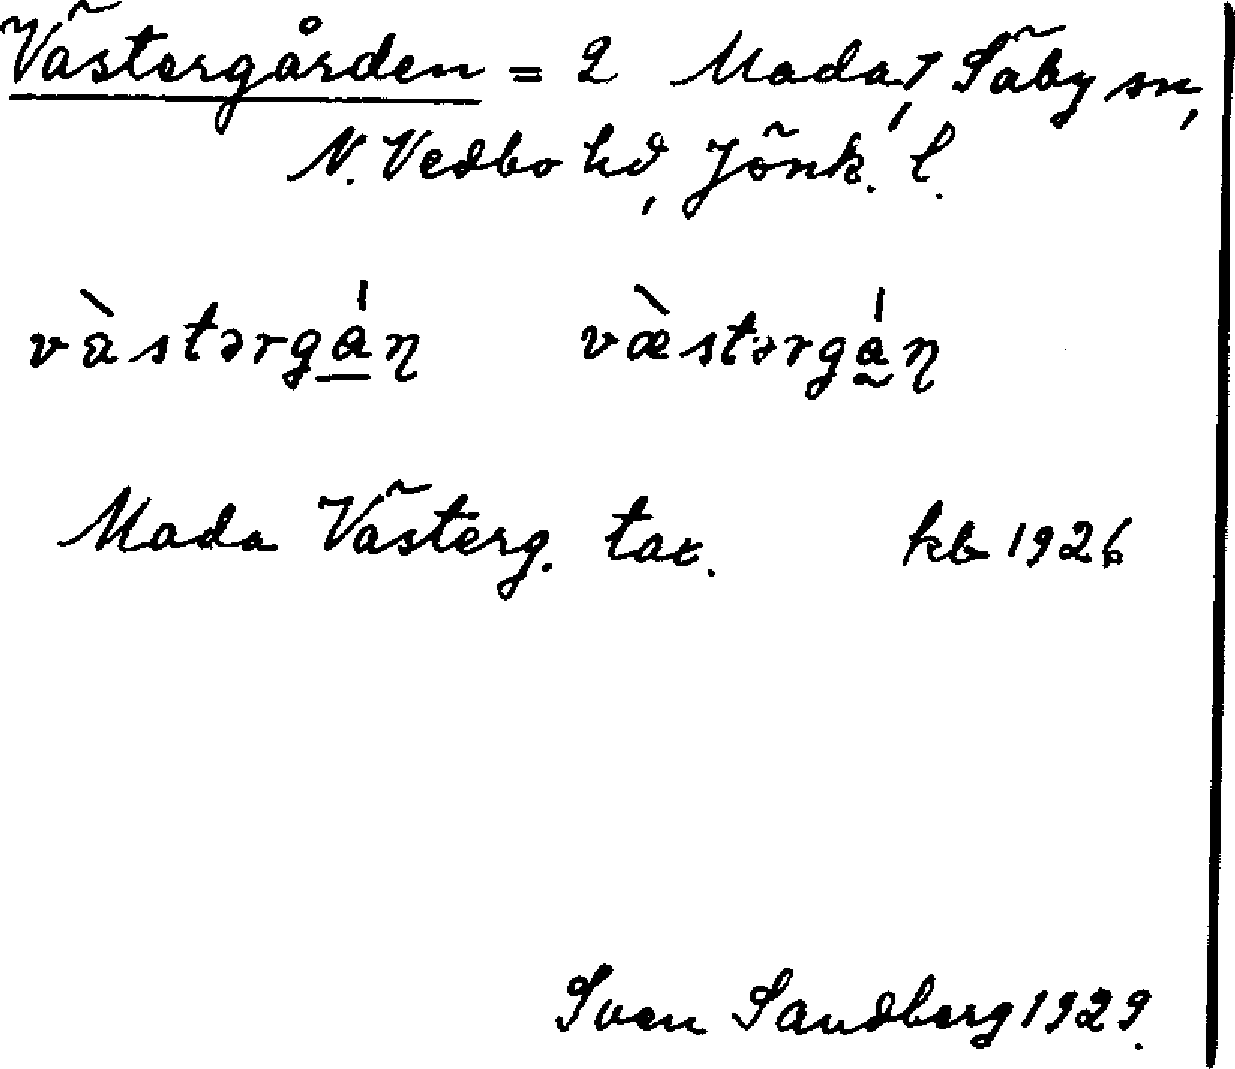 Västergården = 2 Mada, Säby sn,
N. Vedbo hd, Jönk. l.
vàstərgá̲ɳ væ̀stərgá̰ɳ
Mada Västerg. tax. kb 1926
Sven Sandberg 1929.